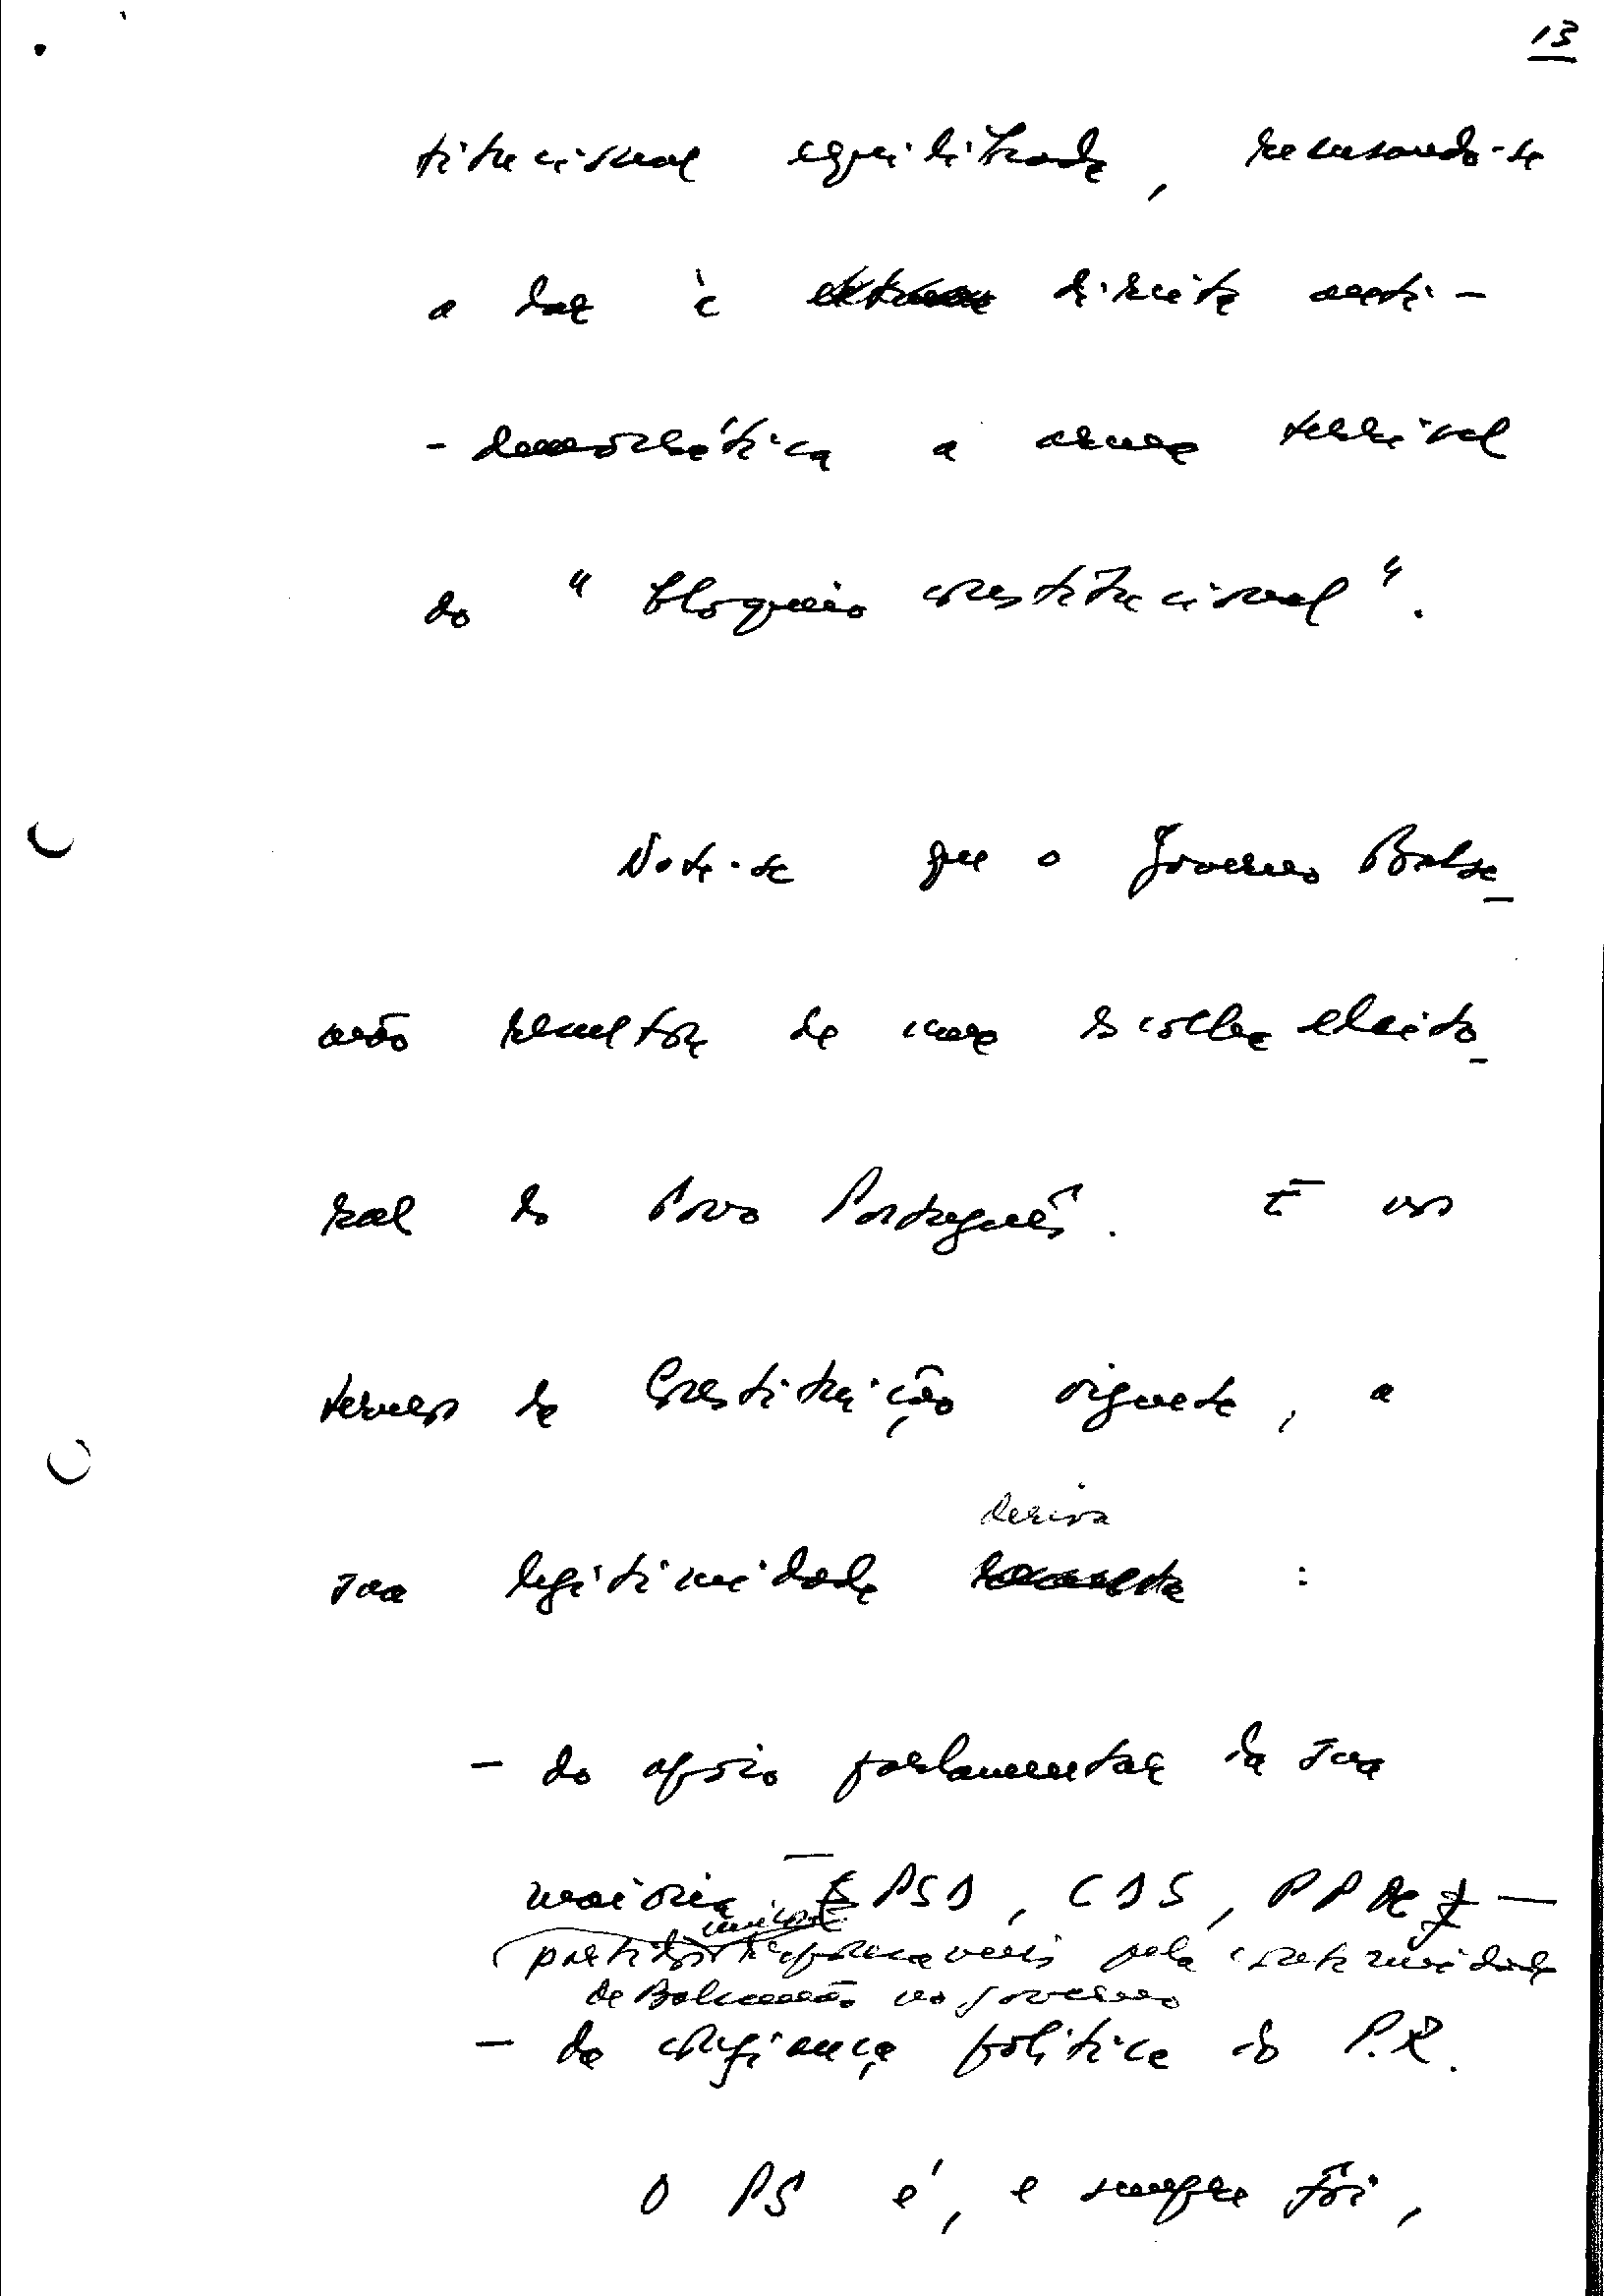 13
titucional equilibrada, recusando-se
a dar à direita anti-
-democrática a arma terrível
do "bloqueio constitucional".
Note-se que o Governo Balse_
mão resultou de uma escolha eleito_
ral do Povo Português. E nos
termos da Constituição vigente, a
deriva
sua legitimidade :
- do apoio parlamentar da sua
maioria - PSD, CDS, PPM -
únicos
partidos responsáveis pela continuidade
de Balsemão no governo
- da confiança política do P.R.
O PS é, e sempre foi,